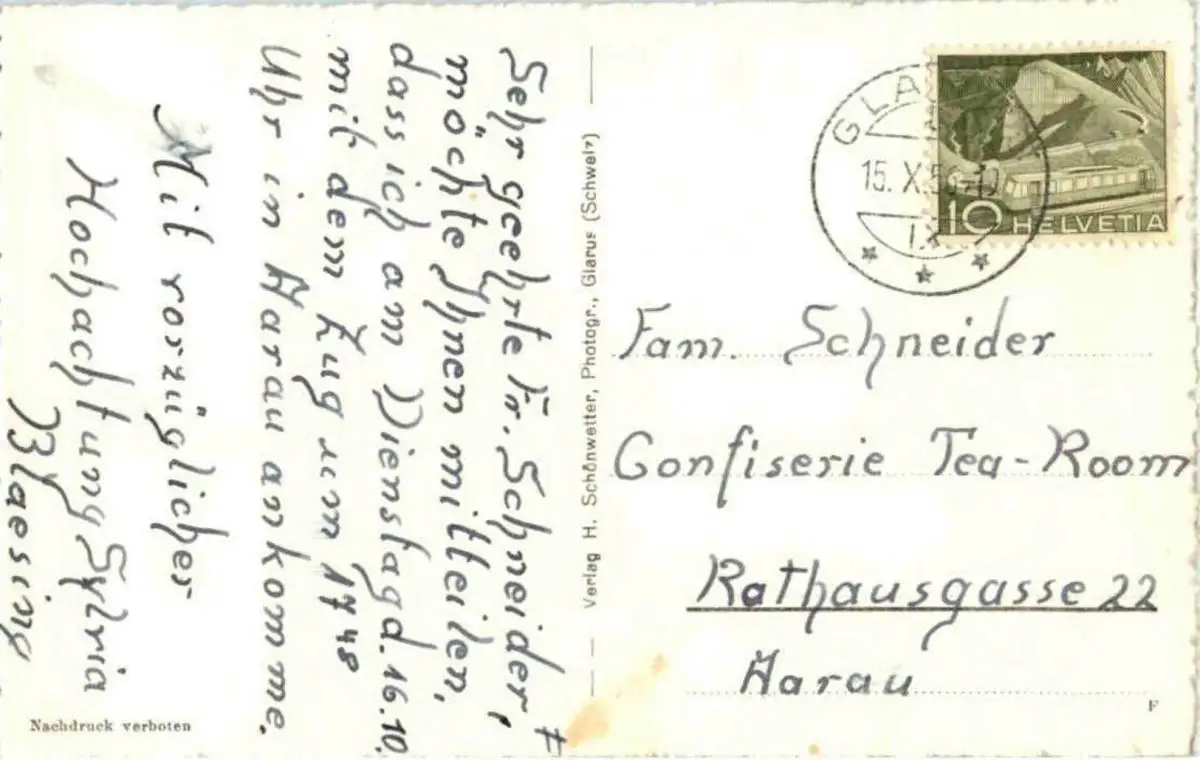 Sehr geehrte Fr. Schneider,
möchte Ihnen mitteilen,
dass ich am Dienstag d. 16.10.
mit dem Zug um 17 48
Uhr in Aarau ankomme.
Mit vorzüglicher
Hochachtung Sylvia
Blaesing
Nachdruck verboten
Verlag H. Schönwetter, Photogr., Glarus (Schweiz)
GLA
15. X. 5
IX
10 HELVETIA
Fam. Schneider
Confiserie Tea-Room
Rathausgasse 22
Aarau
F